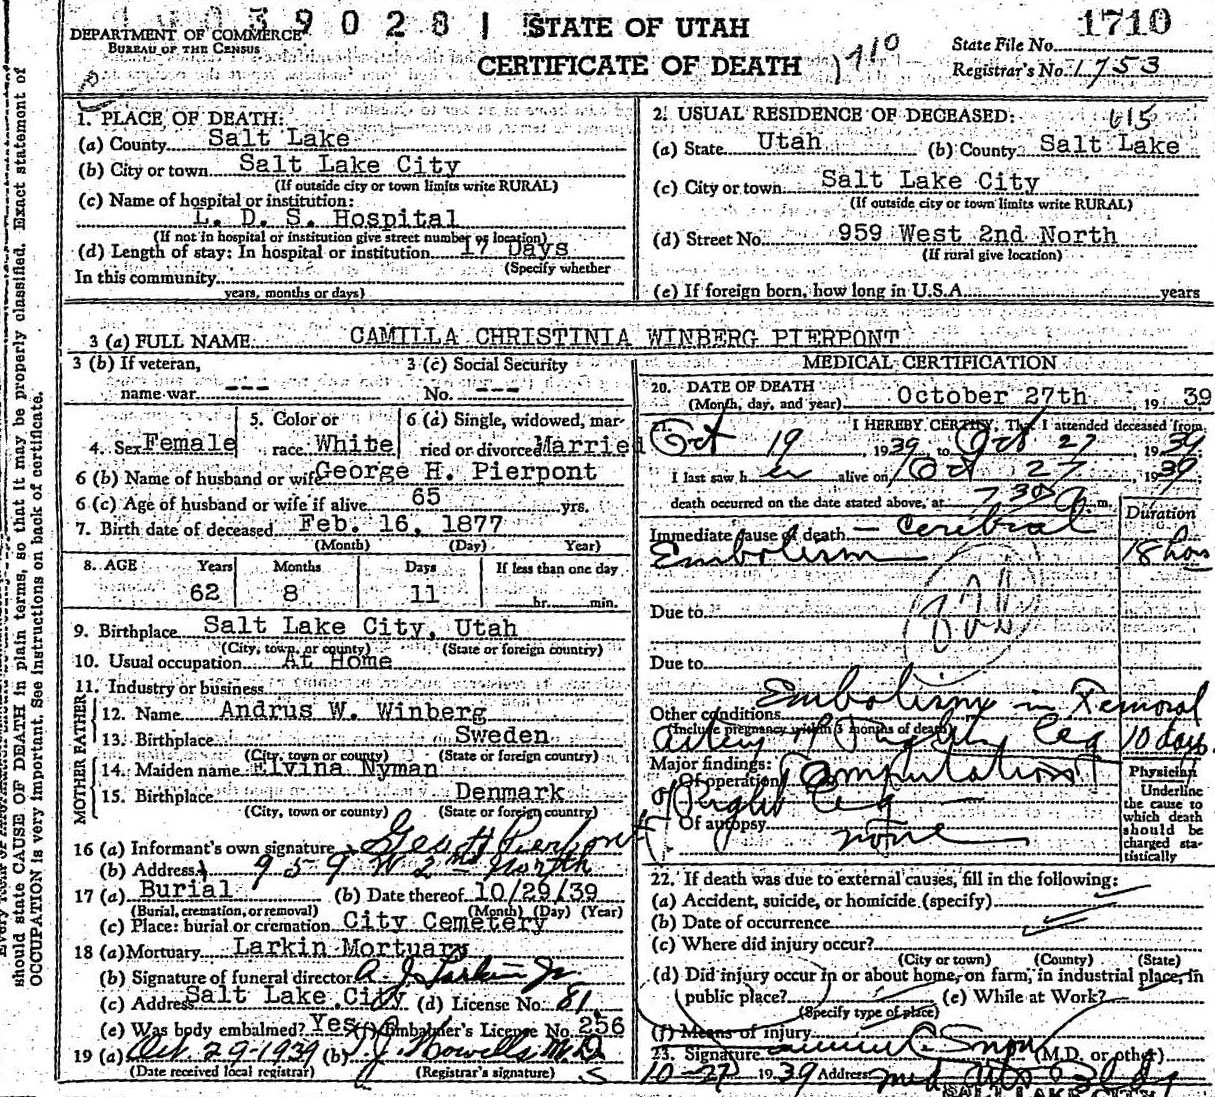 39028 | STATE OF UTAH 1710
DEPARTMENT OF COMMERCE
BUREAU OF THE CENSUS
State File No.
CERTIFICATE OF DEATH 110
Registrar's No. 1753
1. PLACE OF DEATH:
(a) County Salt Lake
(b) City or town Salt Lake City
(If outside city or town limits write RURAL)
(c) Name of hospital or institution:
L. D. S. Hospital
(If not in hospital or institution give street number or location)
(d) Length of stay: In hospital or institution 17 Days
(Specify whether
In this community
years, months or days)
2. USUAL RESIDENCE OF DECEASED: 615
(a) State Utah (b) County Salt Lake
(c) City or town Salt Lake City
(If outside city or town limits write RURAL)
(d) Street No. 959 West 2nd North
(If rural give location)
(e) If foreign born, how long in U.S.A. years
3 (a) FULL NAME CAMILLA CHRISTINIA WINBERG PIERPONT
3 (b) If veteran, 3 (c) Social Security
name war --- No. ---
4. Sex Female 5. Color or race White 6 (a) Single, widowed, married or divorced Married
6 (b) Name of husband or wife George H. Pierpont
6 (c) Age of husband or wife if alive 65 yrs.
7. Birth date of deceased Feb. 16, 1877
(Month) (Day) Year)
8. AGE Years Months Days If less than one day
62 8 11 hr. min.
9. Birthplace Salt Lake City, Utah
(City, town, or county) (State or foreign country)
10. Usual occupation At Home
11. Industry or business
FATHER
12. Name Andrus W. Winberg
13. Birthplace Sweden
(City, town or county) (State or foreign country)
MOTHER
14. Maiden name Elvina Nyman
15. Birthplace Denmark
(City, town or county) (State or foreign country)
16 (a) Informant's own signature Geo H Pierpont
(b) Address 959 W 2nd North
17 (a) Burial (b) Date thereof 10/29/39
(Burial, cremation, or removal) (Month) (Day) (Year)
(c) Place: burial or cremation City Cemetery
18 (a) Mortuary Larkin Mortuary
(b) Signature of funeral director A. J. Larkin Jr
(c) Address Salt Lake City (d) License No. 81
(e) Was body embalmed? Yes (f) Embalmer's License No. 256
19 (a) Oct. 29-1939 (b) J. Howells M.D.
(Date received local registrar) (Registrar's signature)
MEDICAL CERTIFICATION
20. DATE OF DEATH
(Month, day, and year) October 27th, 1939
21. I HEREBY CERTIFY, That I attended deceased from
Oct 19 1939 to Oct 27, 1939
I last saw her alive on Oct 27, 1939
death occurred on the date stated above, at 7 30 m.
Duration
Immediate cause of death — Cerebral
Embolism 18 hours
Due to
82b
Due to
Embolism in Femoral
Other conditions
(Include pregnancy within 3 months of death)
artery of Right Leg 10 days.
Major findings:
Of operation Amputation
of Right Leg —
Of autopsy none
Physician
Underline
the cause to
which death
should be
charged sta-
tistically
22. If death was due to external causes, fill in the following:
(a) Accident, suicide, or homicide (specify)
(b) Date of occurrence
(c) Where did injury occur?
(City or town) (County) (State)
(d) Did injury occur in or about home, on farm, in industrial place, in
public place? (e) While at Work?
(Specify type of place)
(f) Means of injury
23. Signature C Snow (M.D. or other)
10-27 1939 Address Med Arts Bldg
SALT LAKE CITY
should state CAUSE OF DEATH in plain terms, so that it may be properly classified. Exact statement of
OCCUPATION is very important. See instructions on back of certificate.